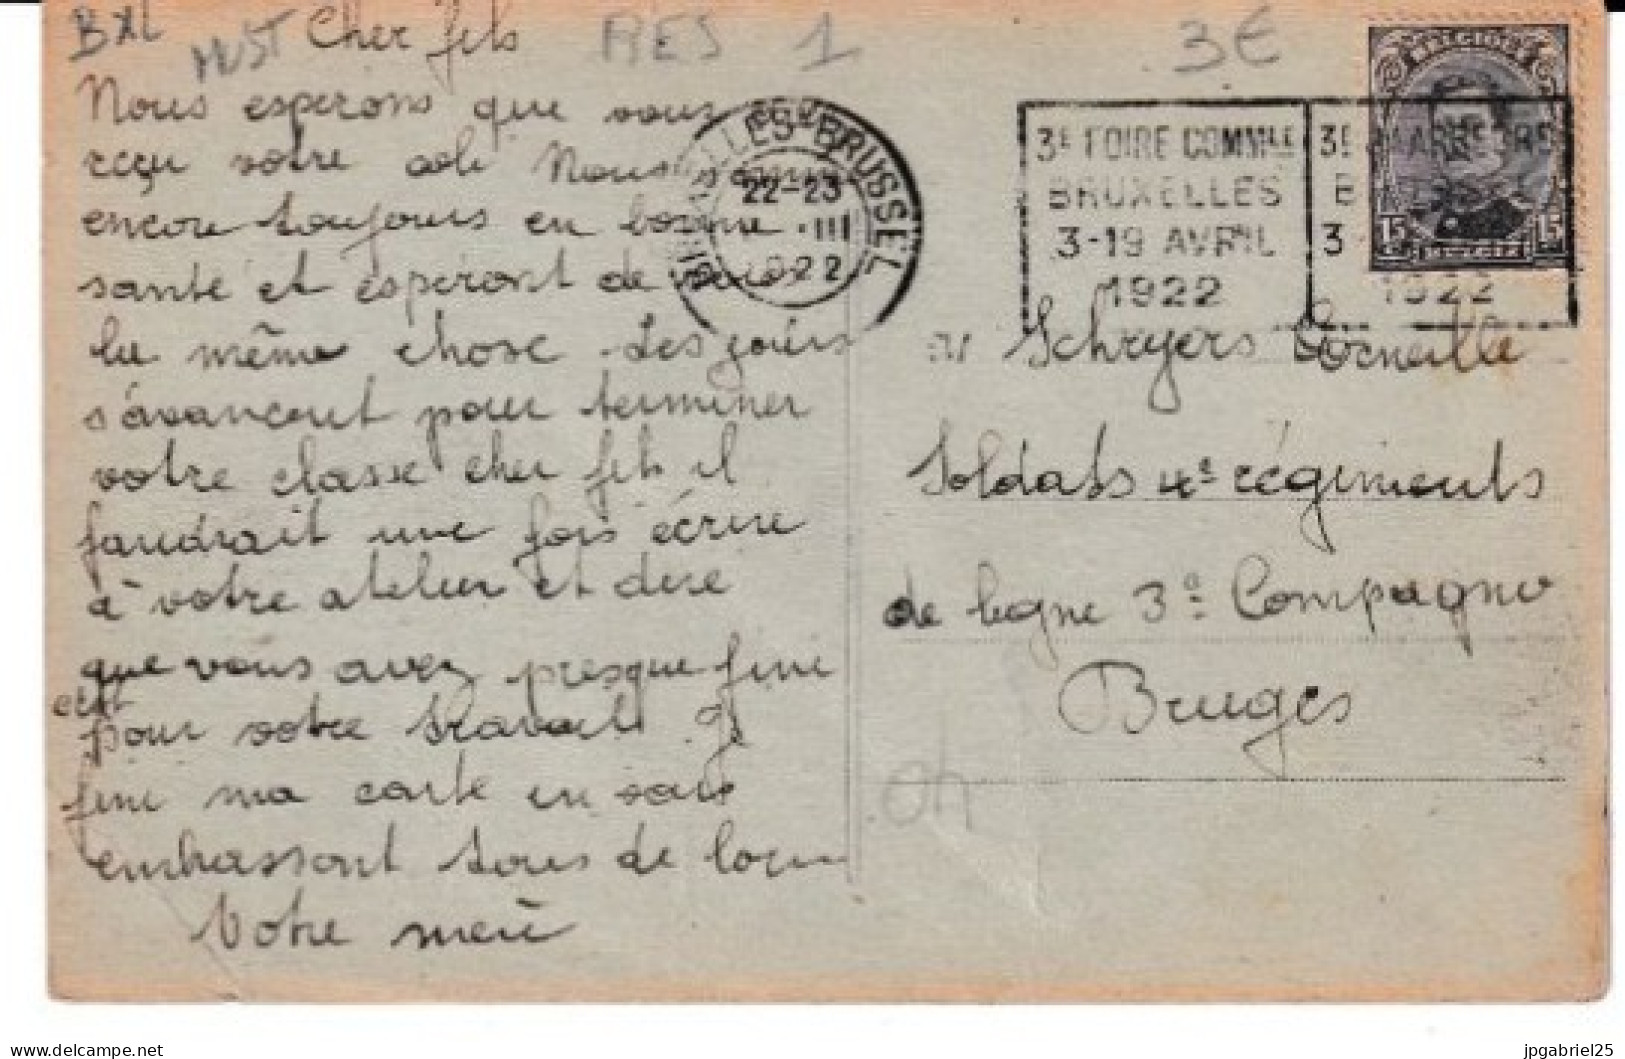 BXL MUST Cher fils RES 1 3€
Nous esperons que vous
reçu votre coli Nous sommes
encore toujours en bonne
santé et esperont de vous
la même chose Les jours
s'avancent pour terminer
votre classe cher fils il
faudrait une fois écrire
à votre atelier et dire
que vous avez presque fini
et
pour votre travail Je
fini ma carte en vous
embrassont tous de loin
Votre merè
BRUXELLES-BRUSSEL
22-23
III
1922
3E FOIRE COMMLE
BRUXELLES
3-19 AVRIL
1922
3E JAARBEURS
BRUSSEL
3-
1922
BELGIQUE
15 15
BELGIE
Schryers Corneille
Soldats 4e régiments
de legne 3e Compagne
Bruges
04
delcampe.net
jpgabriel25